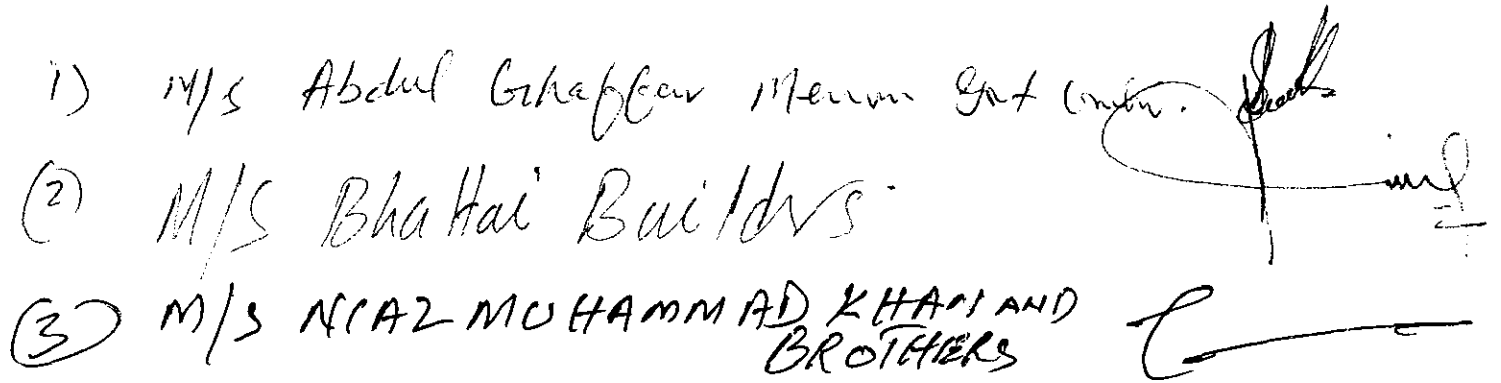 1) M/S Abdul Ghaffar Memon Govt Contr.
(2) M/S Bhattai Builders.
(3) M/S NIAZ MUHAMMAD KHAN AND
BROTHERS